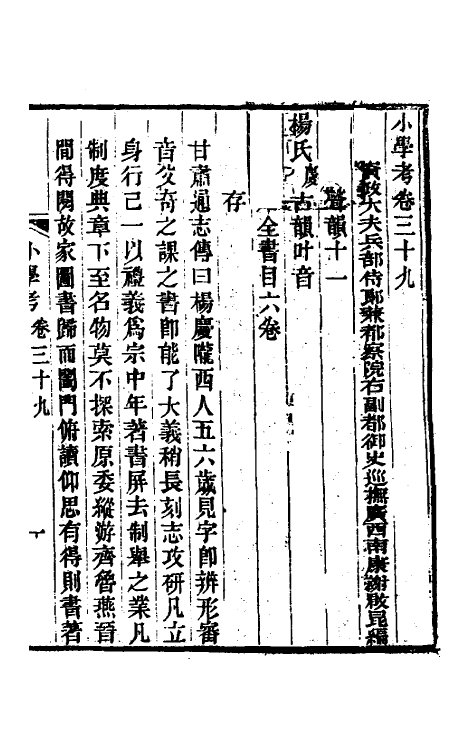 小學考卷三十九
資政大夫兵部侍郞兼都察院右副都御史巡撫廣西南康謝啟昆編
聲韻十一
楊氏慶古韻叶音
全書目六卷
存
甘肅通志傳曰楊慶隴西人五六歲見字卽辨形審
音父奇之課之書卽能了大義稍長刻志攻研凡立
身行己一以禮義爲宗中年著書屏去制舉之業凡
制度典章下至名物莫不探索原委縱游齊魯燕晉
間得閱故家圖書歸而閭門俯讀仰思有得則書著
小學考 卷三十九